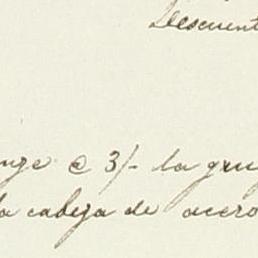 Descuent
@ 3/- la grue
la cabeza de acero